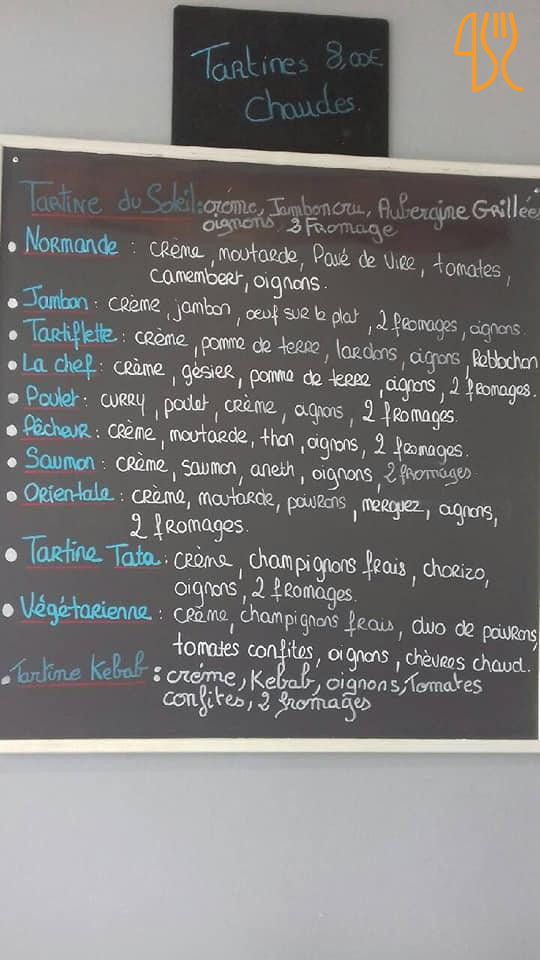 Tartines 8,00€
Chaudes.
Tartine du Soleil: crome, Jambon cru, Aubergine Grillées
oignons, 2 Fromage
• Normande : crème, moutarde, Pavé de Vire, tomates,
camembert, oignons.
• Jambon : crème, jambon, oeuf sur le plat, 2 fromages, oignons.
• Tartiflette : crème, pomme de terre, lardons, oignons, Reblochon
• La chef : crème, gésier, pomme de terre, oignons, 2 fromages.
• Poulet : curry, poulet, crème, oignons, 2 fromages.
• Pêcheur : crème, moutarde, thon, oignons, 2 fromages.
• Saumon : crème, saumon, aneth, oignons, 2 fromages
• Orientale : crème, moutarde, poivrons, merguez, oignons,
2 fromages.
• Tartine Tata : crème, champignons frais, chorizo,
oignons, 2 fromages.
• Végétarienne : crème, champignons frais, duo de poivrons,
tomates confites, oignons, chèvres chaud.
• Tartine Kebab : créme, Kebab, oignons, Tomates
confites, 2 fromages